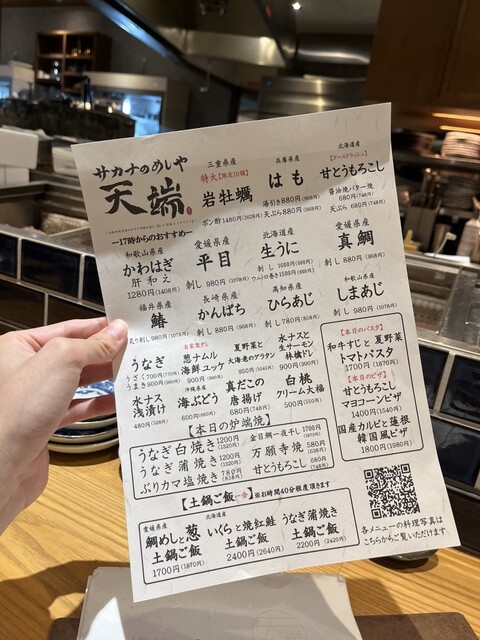 サカナのめしや
天端
ー17時からのおすすめー
三重県産
特大【限定10個】
岩牡蠣
ポン酢1480(1628円)
兵庫県産
はも
湯引き880(968円)
天ぷら880(968円)
北海道産
【ゴールドラッシュ】
甘とうもろこし
醤油焼バター焼
680円(748円)
天ぷら 680(748円)
和歌山県産
かわはぎ
肝和え
1280円(1408円)
愛媛県産
平目
刺し 980円(1078円)
北海道産
生うに
刺し
愛媛県産
真鯛
刺し 880円(968円)
福井県産
鰆
炙り刺し980円(1078円)
長崎県産
かんぱち
刺し 880円(968円)
高知県産
ひらあじ
刺し 780円(858円)
和歌山県産
しまあじ
刺し 980円(1078円)
うなぎ
うざく700円(770円)
うまき900円(990円)
自家製ダレ
葱ナムル
海鮮ユッケ
900円(990円)
夏野菜と
大海老のグラタン
950円(1045円)
水ナスと
生サーモン
林檎ドレ
900円(990円)
水ナス
浅漬け
480円(528円)
沖縄県産
海ぶどう
600円(660円)
真だこの
唐揚げ
680円(748円)
白桃
クリーム大福
500円(550円)
【本日のパスタ】
和牛すじと夏野菜
トマトパスタ
1700円(1870円)
【本日のピザ】
甘とうもろこし
マヨコーンピザ
1400円(1540円)
国産カルビと蓮根
韓国風ピザ
1800円(1980円)
【本日の炉端焼】
うなぎ白焼き1200円(1320円)
うなぎ蒲焼き1200円(1320円)
ぶりカマ塩焼き780円(858円)
金目鯛一夜干し1700円(1870円)
万願寺焼 580円(638円)
甘とうもろこし 680円(748円)
【土鍋ご飯一合】※お時間40分程度頂きます
愛媛県産
鯛めしと葱
土鍋ご飯
1700円(1870円)
北海道産
いくらと焼紅鮭
土鍋ご飯
2400円(2640円)
うなぎ蒲焼き
土鍋ご飯
2200円(2420円)
各メニューの料理写真は
こちらからご覧いただけます